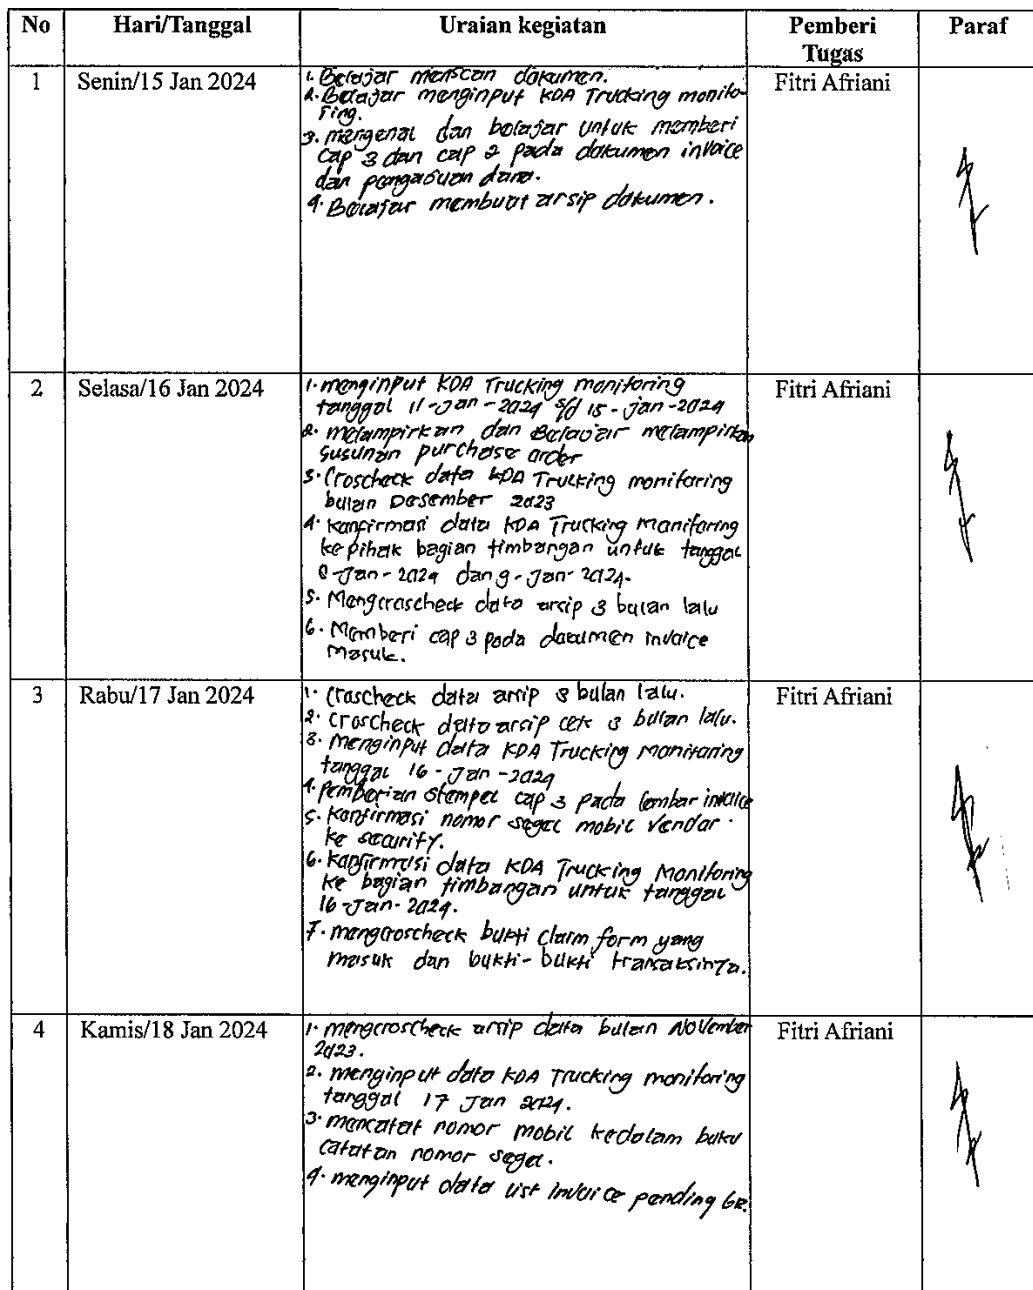 No Hari/Tanggal Uraian kegiatan Pemberi Tugas Paraf
1 Senin/15 Jan 2024 Fitri Afriani
1. Belajar menscan dokumen.
2. Belajar menginput KDA Trucking monito-
ring.
3. mengenal dan belajar untuk memberi
cap 3 dan cap 2 pada dokumen invoice
dan pengajuan dana.
4. Belajar membuat arsip dokumen.
2 Selasa/16 Jan 2024 Fitri Afriani
1. menginput KDA Trucking monitoring
tanggal 11-Jan-2024 s/d 15-Jan-2024
2. melampirkan dan Belajar melampirkan
susunan purchase order
3. Croscheck data KDA Trucking monitoring
bulan Desember 2023
4. Konfirmasi data KDA Trucking monitoring
ke pihak bagian timbangan untuk tanggal
8-Jan-2024 dan 9-Jan-2024.
5. Mengcroscheck data arsip 3 bulan lalu
6. Memberi cap 3 pada dokumen invoice
masuk.
3 Rabu/17 Jan 2024 Fitri Afriani
1. Croscheck data arsip 3 bulan lalu.
2. croscheck data arsip cek 3 bulan lalu.
3. menginput data KDA Trucking monitoring
tanggal 16-Jan-2024
4. pemberian stempel cap 3 pada lembar invoice
5. Konfirmasi nomor segel mobil vendor
ke security.
6. Konfirmasi data KDA Trucking Monitoring
ke bagian timbangan untuk tanggal
16-Jan-2024.
7. mengcroscheck bukti claim form yang
masuk dan bukti-bukti transaksinya.
4 Kamis/18 Jan 2024 Fitri Afriani
1. mengcroscheck arsip data bulan November
2023.
2. menginput data KDA Trucking monitoring
tanggal 17 Jan 2024.
3. mencatat nomor mobil kedalam buku
catatan nomor segel.
4. menginput data list invoice pending GR.